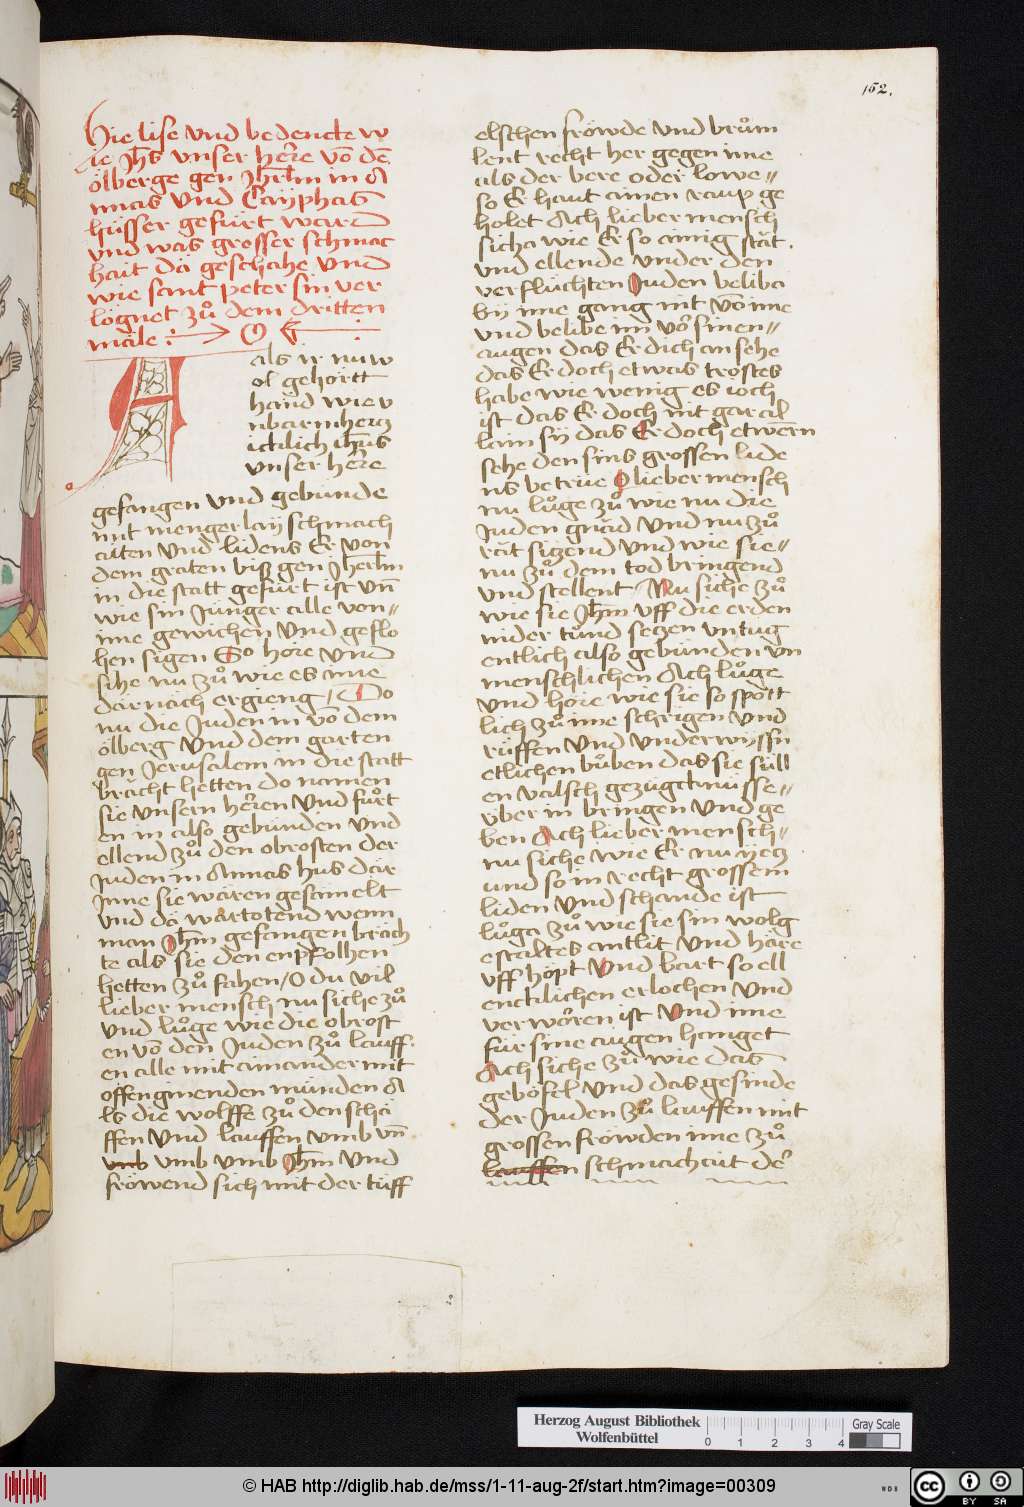 152.
Hie lise vnd bedencke w
ie Jhs vnser here võ dē
ölberge gen Jhrlm in A
nnas vnd Cayphas
hüsser gefürt ward
vnd was grosser schmac
hait då geschahe vnd
wie sant peter sin ver
lögnet zů dem dritten
måle :
Als ir nu w
ol gehörtt
händ wie v
nbarmhercz
icklich ihūs
vnser here
gefangen vnd gebunde
mit mengerlaÿ schmach
aiten vnd lidens Er von
dem graten biß gen Jherlm
in die statt gefürt ist vn̄
wie sin Jünger alle von=
ime gewichen vnd geflo
hen sigen So höre vnd
sihe nu zů wie es ime
darnach ergieng / Do
nu die Juden in võ dem
ölberg vnd dem garten
gen Jerusalem in die statt
brächt hetten do namen
sie vnsern heren vnd fůrt
en in also gebunden vnd
ellend zů den obrosten der
Juden in Annas hus dar
Inne sie wåren gesamelt
vnd då wårtotend wenn
man Jhm gefangen bräch
te als sie den enpfolhen
hetten zů fahen / O du vil
lieber mensch nu siche zů
vnd lůge wie die obrost
en võ den Juden zů lauff
en alle mit ainander mit
offengmenden munden A
ls die wolffe zů den schå
ffen vnd lauffen vmb vn̄
vmb vmb vmb Jhm vnd
fröwend sich mit der tüff
elschen fröwde vnd brům
lent recht her gegen ime
als der bere oder lowe=
so Er haut ainen raup ge
holet Ach lieber mensch
sicha wie Er so ainig stät.
vnd ellende vnder den
verflüchten Juden beliba
bÿ ime gang nit von ime
vnd belibe im vor sinen=
augen das Er dich ansehe
das Er doch etwas trostes
habe wie wenig es ioch
ist das Er doch nit gar al
lain sÿ das Er doch etwern
sehe den sins grossen lide
ns betrüe O lieber mensch
nu lůge zů wie nu die
Juden gnäd vnd nu zů
rät siczend vnd wie sie=
nu zů dem tod bringend
vnd stellent Nu siche zů
wie sie Jhm vff die erden
nider tůnd seczen vntug
entlich also gebunden vn
menschlichen Ach lůge
vnd höre wie sie so spött
lich zů ime schrigen vnd
rüffen vnd vnderwÿssn
etlichen bůben das sie süll
en valsch gezügcknüsse=
vber in bringen vnd ge
ben Ach lieber mensch=
nu siche wie Er nu ÿecz
und so in recht grossem
liden vnd schande ist
lůga zů wie sie sin wolg
estaltes antlit vnd håre
vff höpt vnd bart so ell
encklichen erlochen vnd
verworen ist vnd ime
für sine augen hanget
Ach siche zů wie das
geböfel vnd das gesinde
der Juden zů lauffen mit
grossen fröwden ime zů
lauffen schmachait der
Herzog August Bibliothek
Wolfenbüttel
0 1 2 3 4
Gray Scale
© HAB http://diglib.hab.de/mss/1-11-aug-2f/start.htm?image=00309
WDB
cc BY SA